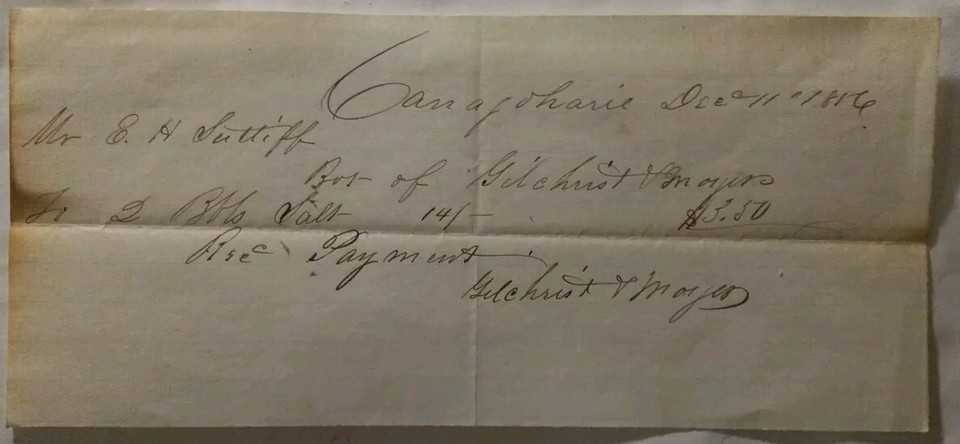 Canajoharie Dec 11th 1856
Mr E. H Sutliff
Bot of Gilchrist & Moyer
To 2 Bbls Salt 14/- $3.50
Rec Payment
Gilchrist & Moyer